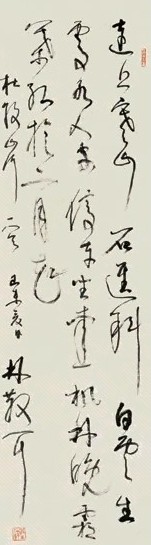 遠上寒山石逕斜白雲生
處有人家停車坐愛楓林晚霜
葉紅於二月花
杜牧山行
林散耳